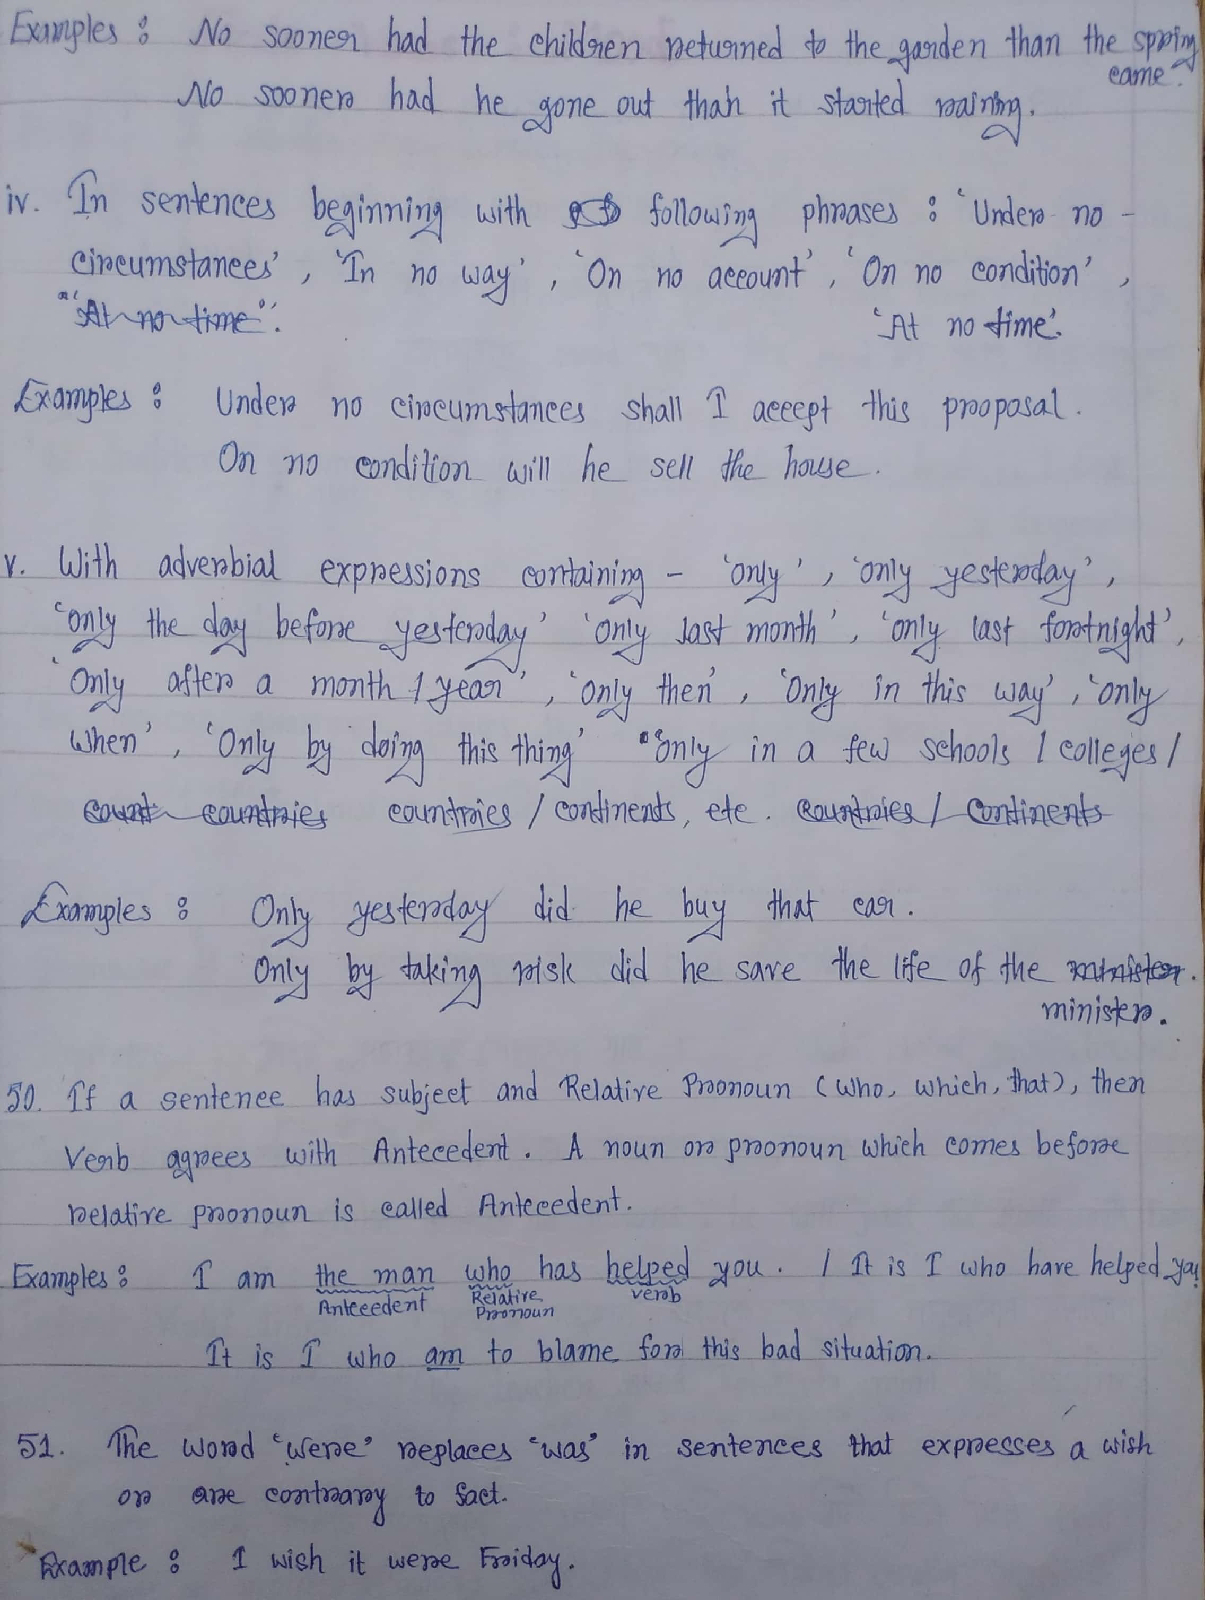 Examples : No sooner had the children returned to the garden than the spring
came.
No sooner had he gone out than it started raining.
iv. In sentences beginning with following phrases : 'Under no -
circumstances', 'In no way', 'On no account', 'On no condition',
"'At no time'".
'At no time'.
Examples : Under no circumstances shall I accept this proposal.
On no condition will he sell the house.
v. With adverbial expressions containing - 'only', 'only yesterday',
'only the day before yesterday' 'only last month', 'only last fortnight',
'Only after a month / year', 'only then', 'Only in this way', 'only
when', 'Only by doing this thing' 'only in a few schools / colleges /
count countries countries / continents, etc. countries / Continents
Examples : Only yesterday did he buy that car.
Only by taking risk did he save the life of the minister.
minister.
50. If a sentence has subject and Relative Pronoun (who, which, that), then
Verb agrees with Antecedent. A noun or pronoun which comes before
relative pronoun is called Antecedent.
Examples : I am the man who has helped you. / It is I who have helped you
Antecedent Relative Pronoun verb
It is I who am to blame for this bad situation.
51. The word 'were' replaces 'was' in sentences that expresses a wish
or are contrary to fact.
Example : I wish it were Friday.